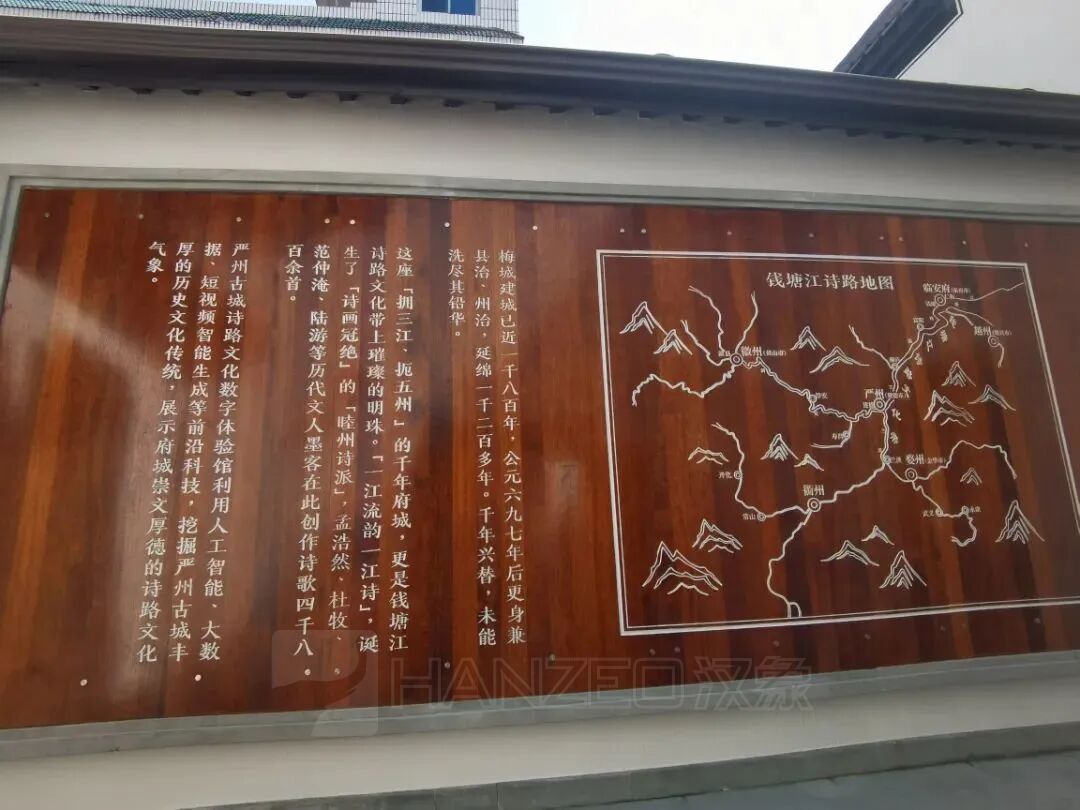 梅城建城已近一千八百年，公元六九七年后更身兼
县治、州治，延绵一千二百多年。千年兴替，未能
洗尽其铅华。
这座「拥三江、扼五州」的千年府城，更是钱塘江
诗路文化带上璀璨的明珠。「一江流韵一江诗」，诞
生了「诗画冠绝」的「睦州诗派」，孟浩然、杜牧、
范仲淹、陆游等历代文人墨客在此创作诗歌四千八
百余首。
严州古城诗路文化数字体验馆利用人工智能、大数
据、短视频智能生成等前沿科技，挖掘严州古城丰
厚的历史文化传统，展示府城崇文厚德的诗路文化
气象。
钱塘江诗路地图
临安府
越州
徽州
严州
婺州
衢州
淳安
开化
常山
武义
永康
HANZEO 汉象